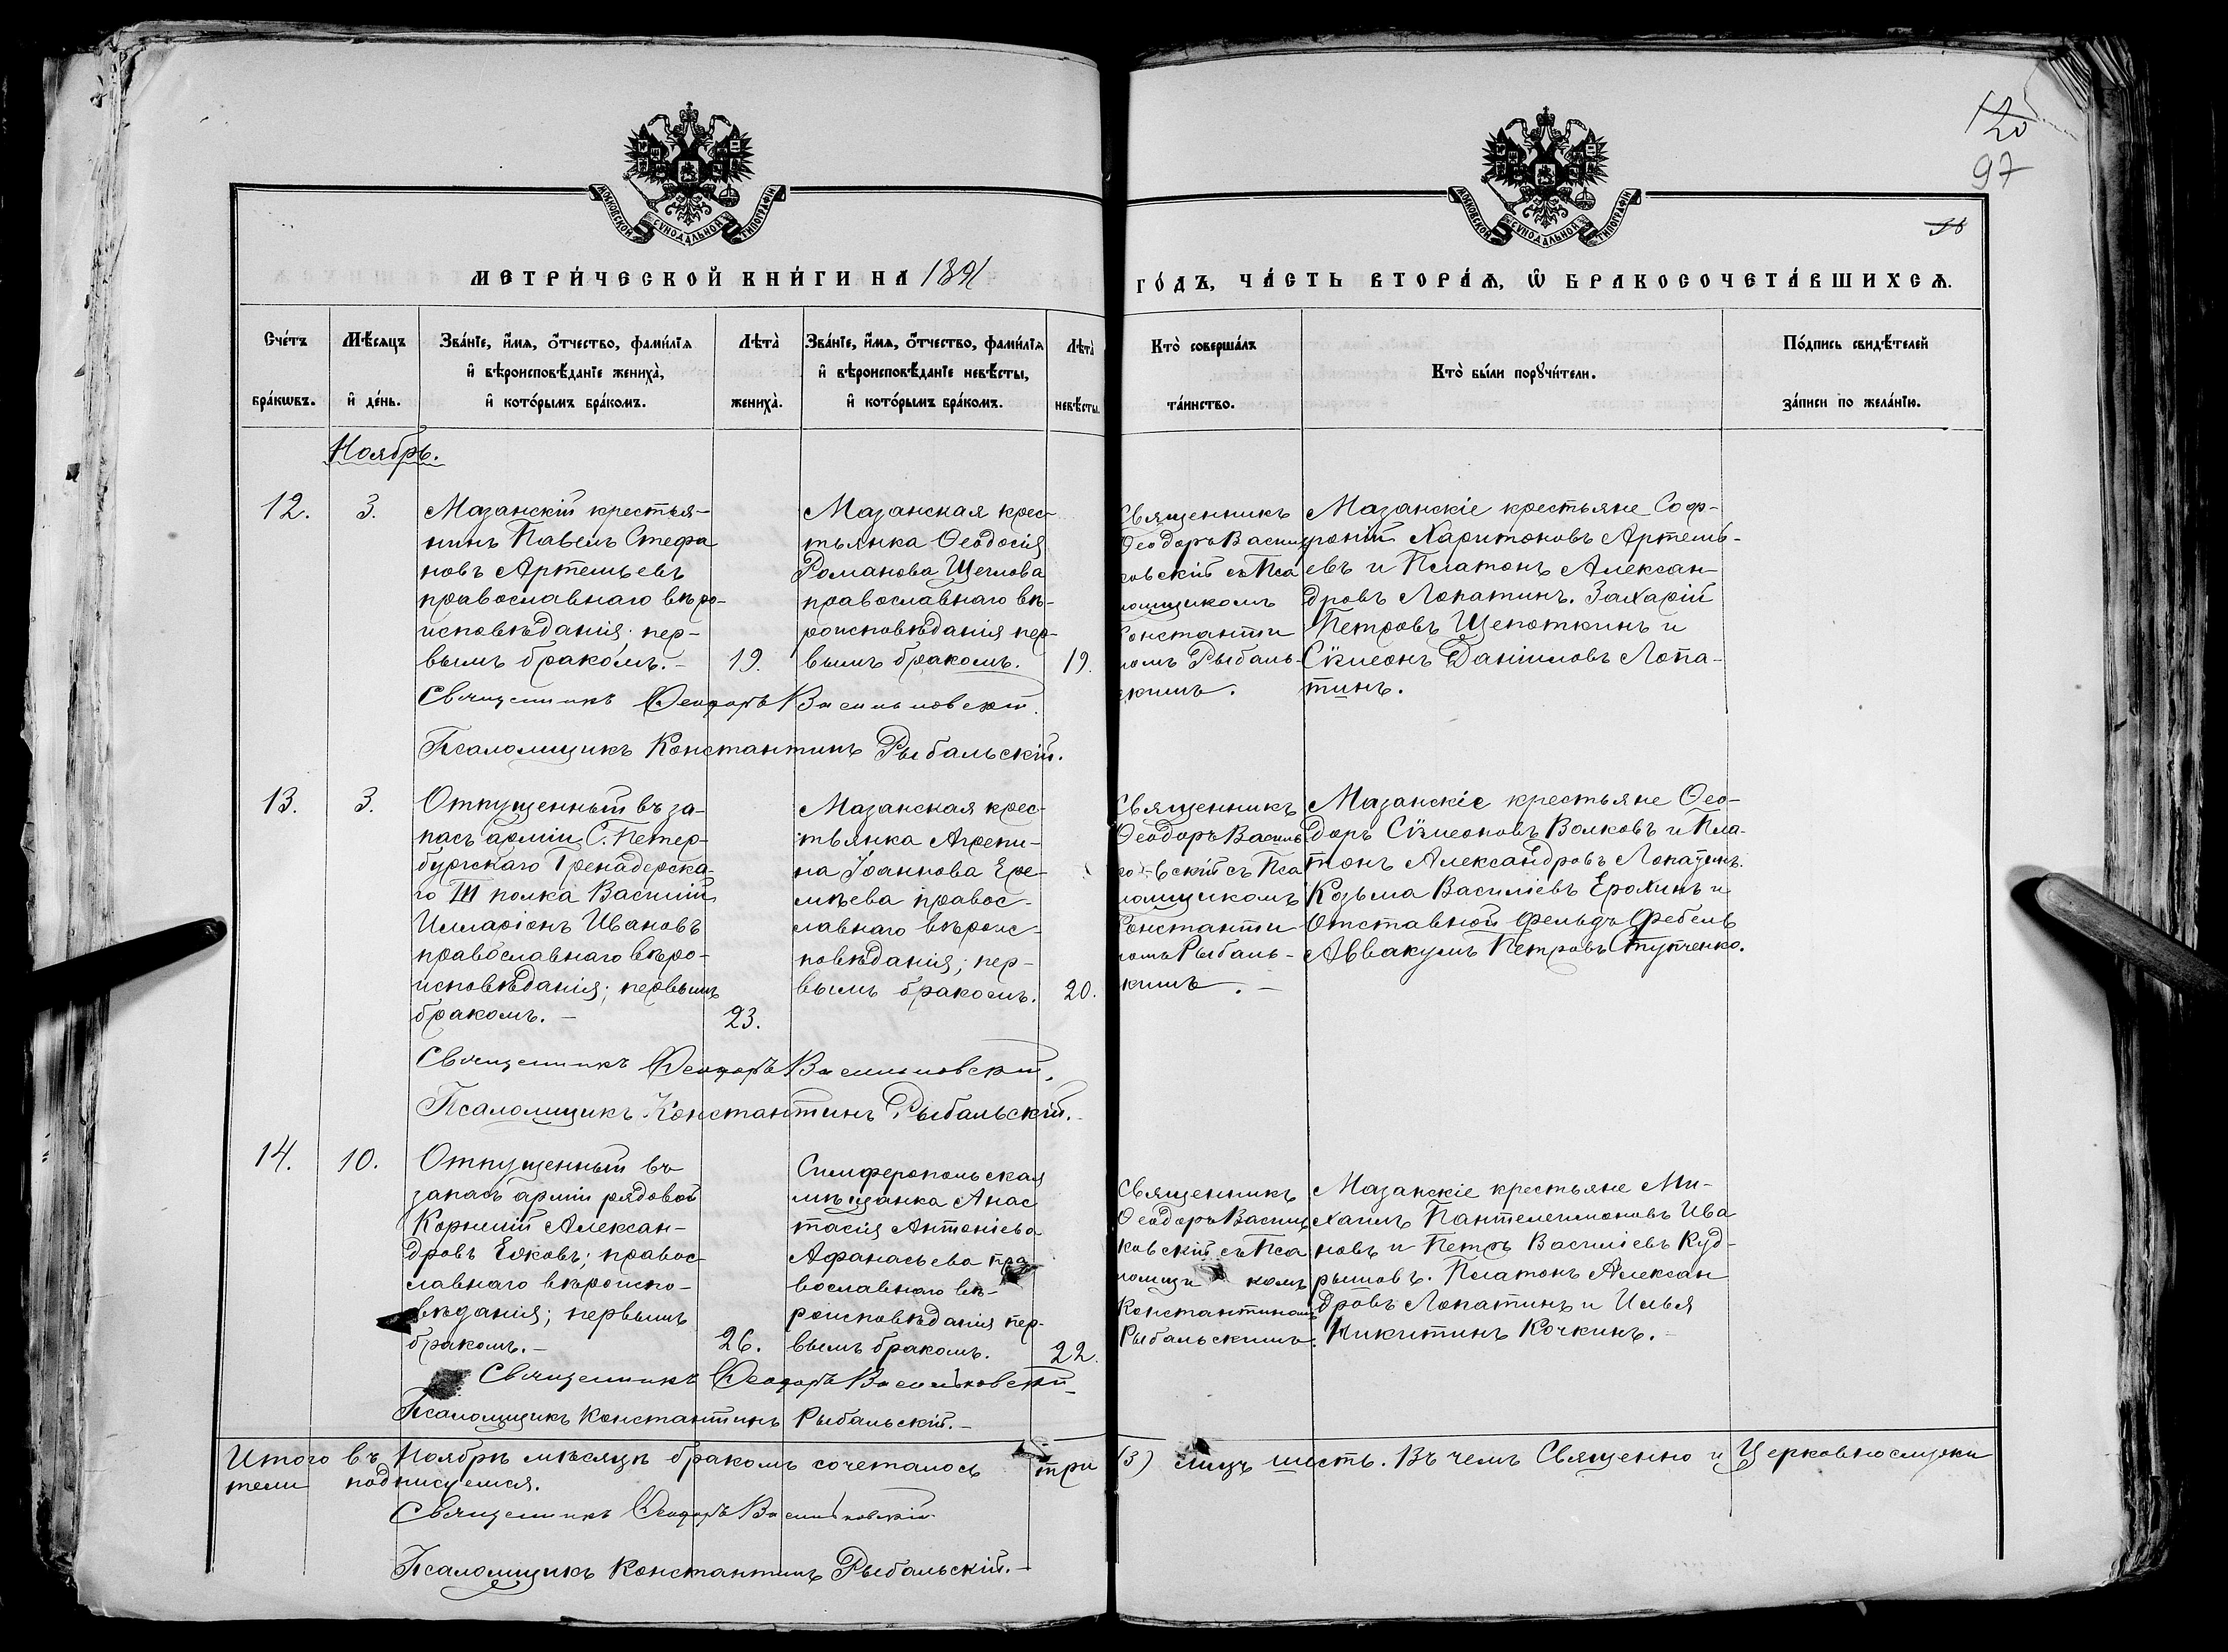 120
97
МОСКОВСКОЙ СУНОДАЛЬНОЙ ТИПОГРАФІИ
МОСКОВСКОЙ СУНОДАЛЬНОЙ ТИПОГРАФІИ
МЕТРИ́ЧЕСКОЙ КНИ́ГИ НА 1891
ГО́ДЪ, ЧА́СТЬ ВТОРА́Ѧ, Ѡ҆ БРАКОСОЧЕТА́ВШИХСѦ.
Сче́тъ бра́кѡвъ.
Мѣ́сяцъ и҆ де́нь.
Зва́нїе, и҆́мѧ, ѻ҆́тчество, фами́лїѧ
и҆ вѣроисповѣ́данїе жениха̀,
и҆ кото́рымъ бра́комъ.
Лѣта̀ жениха̀.
Зва́нїе, и҆́мѧ, ѻ҆́тчество, фами́лїѧ
и҆ вѣроисповѣ́данїе невѣ́сты,
и҆ кото́рымъ бра́комъ.
Лѣта̀ невѣ́сты.
Кто̀ соверша́лъ
та́инство.
Кто̀ бы́ли порꙋчи́тели.
По́дпись свидѣ́телей
за́писи по жела́нїю.
Ноябрь.
12.
3.
Мазанскій крестья-
нинъ Павелъ Стефа
новъ Артемьевъ
православнаго вѣро-
исповѣданія; пер-
вымъ бракомъ.-
19.
Мазанская крес-
тьянка Ѳеодосія
Романова Щеглова
православнаго вѣ-
роисповѣданія пер-
вымъ бракомъ.
19.
Священникъ
Ѳеодоръ Василь
ковскій съ Пса
ломщикомъ
Константи
номъ Рыбаль-
скимъ.
Мазанскіе крестьяне Соф-
роній Харитоновъ Артемь-
евъ и Платонъ Алексан-
дровъ Лопатинъ. Захарій
Петровъ Щепоткинъ и
Сѵмеонъ Даніиловъ Лопа-
тинъ.
Священникъ Ѳеодоръ Васильковскій.
Псаломщикъ Константинъ Рыбальскій.
13.
3.
Отпущенный въ за-
пасъ арміи С. Петер-
бургскаго Гренадерска-
го III полка Василій
Илларіонъ Ивановъ
православнаго вѣро-
исповѣданія; первымъ
бракомъ.-
23.
Мазанская крес-
тьянка Агрепи-
на Іоаннова Ере-
мѣева правос-
лавнаго вѣроис-
повѣданія; пер-
вымъ бракомъ.
20.
Священникъ
Ѳеодоръ Василь
ковскій съ Пса
ломщикомъ
Константи
номъ Рыбаль-
скимъ.-
Мазанскіе крестьяне Ѳео-
доръ Сѵмеоновъ Волковъ и Пла-
тонъ Александровъ Лопатинъ.
Козьма Василіевъ Ерохинъ и
Отставной Фельдъ Фебель
Аввакумъ Петровъ Ступченко.
Священникъ Ѳеодоръ Васильковскій.
Псаломщикъ Константинъ Рыбальскій.
14.
10.
Отпущенный въ
запасъ арміи рядовой
Корнилій Алексан-
дровъ Ежовъ; правос-
лавнаго вѣроиспо-
вѣданія; первымъ
бракомъ.-
26.
Симферопольская
мѣщанка Анас
тасія Антоніева
Афанасьева пра
вославнаго вѣ-
роисповѣданія пер-
вымъ бракомъ.
22.
Священникъ
Ѳеодоръ Василь
ковскій съ Пса
ломщи комъ
Константиномъ
Рыбальскимъ.
Мазанскіе крестьяне Ми-
хаилъ Пантелеимоновъ Ива
новъ и Петръ Василіевъ Куд-
рышовъ. Платонъ Алексан
дровъ Лопатинъ и Илья
Никитинъ Кочкинъ.-
Священникъ Ѳеодоръ Васильковскій
Псаломщикъ Константинъ Рыбальскій.-
Итого въ Ноябрѣ мѣсяцѣ бракомъ сочеталось три (3) лицъ шесть. Въ чемъ Священно и Церковнослужи
тели подписуемся.
Священникъ Ѳеодоръ Васильковскій
Псаломщикъ Константинъ Рыбальскій.-